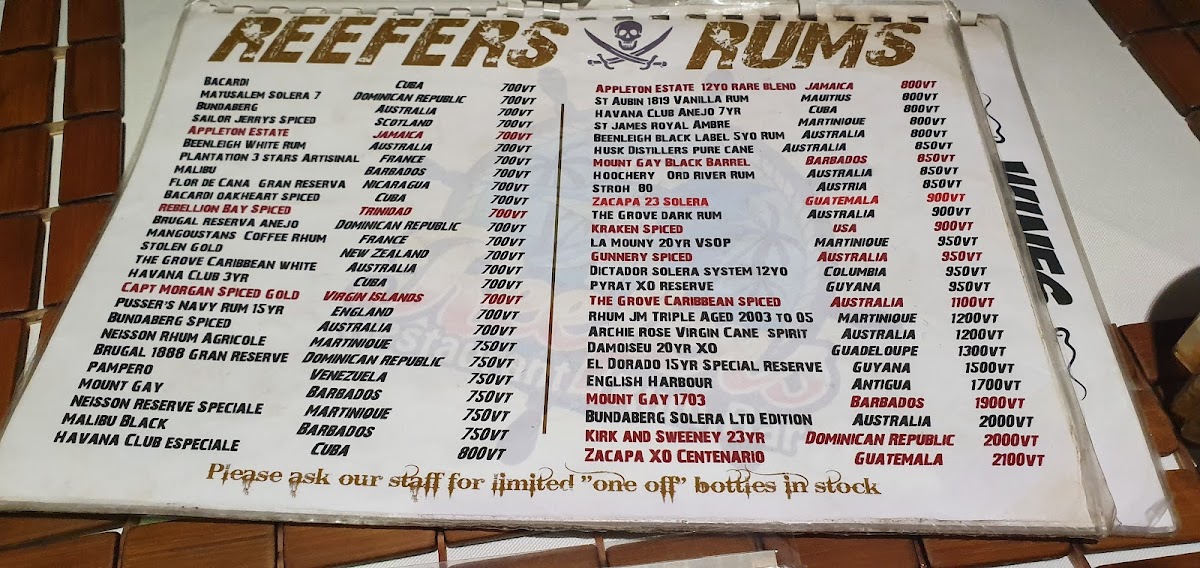 REEFERS RUMS
BACARDI CUBA 700VT
MATUSALEM SOLERA 7 DOMINICAN REPUBLIC 700VT
BUNDABERG AUSTRALIA 700VT
SAILOR JERRYS SPICED SCOTLAND 700VT
APPLETON ESTATE JAMAICA 700VT
BEENLEIGH WHITE RUM AUSTRALIA 700VT
PLANTATION 3 STARS ARTISINAL FRANCE 700VT
MALIBU BARBADOS 700VT
FLOR DE CANA GRAN RESERVA NICARAGUA 700VT
BACARDI OAKHEART SPICED CUBA 700VT
REBELLION BAY SPICED TRINIDAD 700VT
BRUGAL RESERVA ANEJO DOMINICAN REPUBLIC 700VT
MANGOUSTANS COFFEE RHUM FRANCE 700VT
STOLEN GOLD NEW ZEALAND 700VT
THE GROVE CARIBBEAN WHITE AUSTRALIA 700VT
HAVANA CLUB 3YR CUBA 700VT
CAPT MORGAN SPICED GOLD VIRGIN ISLANDS 700VT
PUSSER'S NAVY RUM 15YR ENGLAND 700VT
BUNDABERG SPICED AUSTRALIA 700VT
NEISSON RHUM AGRICOLE MARTINIQUE 750VT
BRUGAL 1888 GRAN RESERVE DOMINICAN REPUBLIC 750VT
PAMPERO VENEZUELA 750VT
MOUNT GAY BARBADOS 750VT
NEISSON RESERVE SPECIALE MARTINIQUE 750VT
MALIBU BLACK BARBADOS 750VT
HAVANA CLUB ESPECIALE CUBA 800VT
APPLETON ESTATE 12YO RARE BLEND JAMAICA 800VT
ST AUBIN 1819 VANILLA RUM MAUITIUS 800VT
HAVANA CLUB ANEJO 7YR CUBA 800VT
ST JAMES ROYAL AMBRE MARTINIQUE 800VT
BEENLEIGH BLACK LABEL 5YO RUM AUSTRALIA 800VT
HUSK DISTILLERS PURE CANE AUSTRALIA 850VT
MOUNT GAY BLACK BARREL BARBADOS 850VT
HOOCHERY ORD RIVER RUM AUSTRALIA 850VT
STROH 80 AUSTRIA 850VT
ZACAPA 23 SOLERA GUATEMALA 900VT
THE GROVE DARK RUM AUSTRALIA 900VT
KRAKEN SPICED USA 900VT
LA MOUNY 20YR VSOP MARTINIQUE 950VT
GUNNERY SPICED AUSTRALIA 950VT
DICTADOR SOLERA SYSTEM 12YO COLUMBIA 950VT
PYRAT XO RESERVE GUYANA 950VT
THE GROVE CARIBBEAN SPICED AUSTRALIA 1100VT
RHUM JM TRIPLE AGED 2003 TO 05 MARTINIQUE 1200VT
ARCHIE ROSE VIRGIN CANE SPIRIT AUSTRALIA 1200VT
DAMOISEU 20YR XO GUADELOUPE 1300VT
EL DORADO 15YR SPECIAL RESERVE GUYANA 1500VT
ENGLISH HARBOUR ANTIGUA 1700VT
MOUNT GAY 1703 BARBADOS 1900VT
BUNDABERG SOLERA LTD EDITION AUSTRALIA 2000VT
KIRK AND SWEENEY 23YR DOMINICAN REPUBLIC 2000VT
ZACAPA XO CENTENARIO GUATEMALA 2100VT
Please ask our staff for limited "one off" bottles in stock
WINES